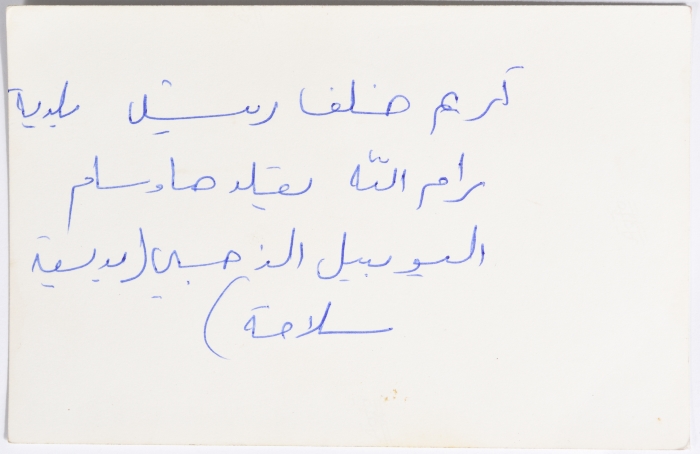 كريم خلف رئيس بلدية
رام الله يقلدها وسام
اليوبيل الذهبي (بديعة
سلامة)